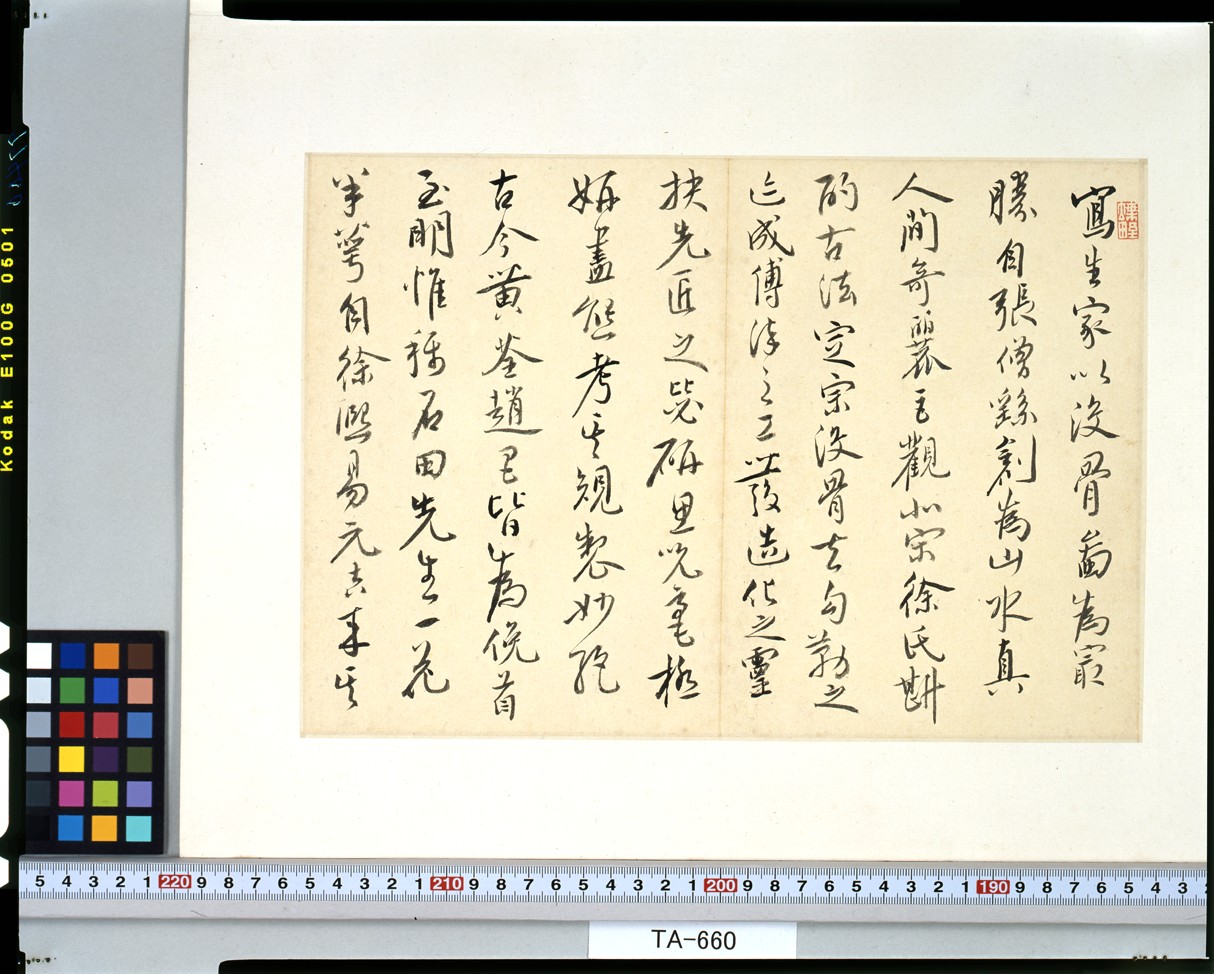 寫生家以沒骨畵為冣
勝自張僧繇創為山水真
人間奇麗之觀北宋徐氏斟
酌古法定宗沒骨去勾勒之
迹成傅染之工以發造化之靈
抉先匠之毖研思吮毫極
妍盡態考其規製妙絕
古今黄荃趙昌皆為俛首
至明惟石田先生一花
半萼自徐熙易元吉來其
TA-660
Kodak E100G 0501
5 4 3 2 1 220 9 8 7 6 5 4 3 2 1 210 9 8 7 6 5 4 3 2 1 200 9 8 7 6 5 4 3 2 1 190 9 8 7 6 5 4 3